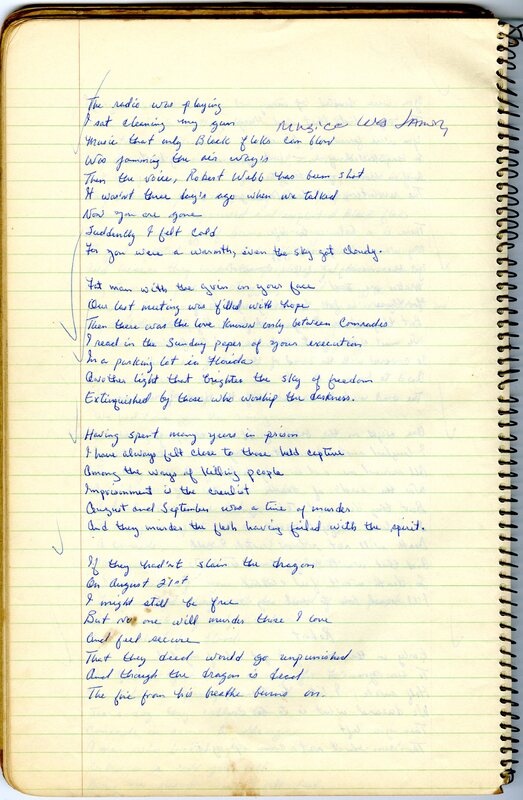 The radio was playing
I sat cleaning my gun
Music that only Black floks can blow
Was jamming the air way's
Then the voice, Robert Webb has been shot
It wasn't three day's ago when we talked
Now you are gone
Suddenly I felt cold
For you were a warmth, even the sky got cloudy.
Fat man with the grin on your face
Our last meeting was filled with hope
Then there was the love known only between comrades
I read in the Sunday paper of your execution
In a parking lot in Florida
Another light that brightes the sky of freedom
Extinguished by those who worship the darkness.
Having spent many years in prison
I have always felt close to those held captive
Among the ways of killing people
Imprisonment is the cruelist
August and September was a time of murder
And they murder the flesh having failed with the spirit.
If they hadn't slain the dragon
On August 21st
I might still be free
But no one will murder those I love
And feel secure
That they deed would go unpunished
And though the dragon is dead
The fire from his breathe burns on.